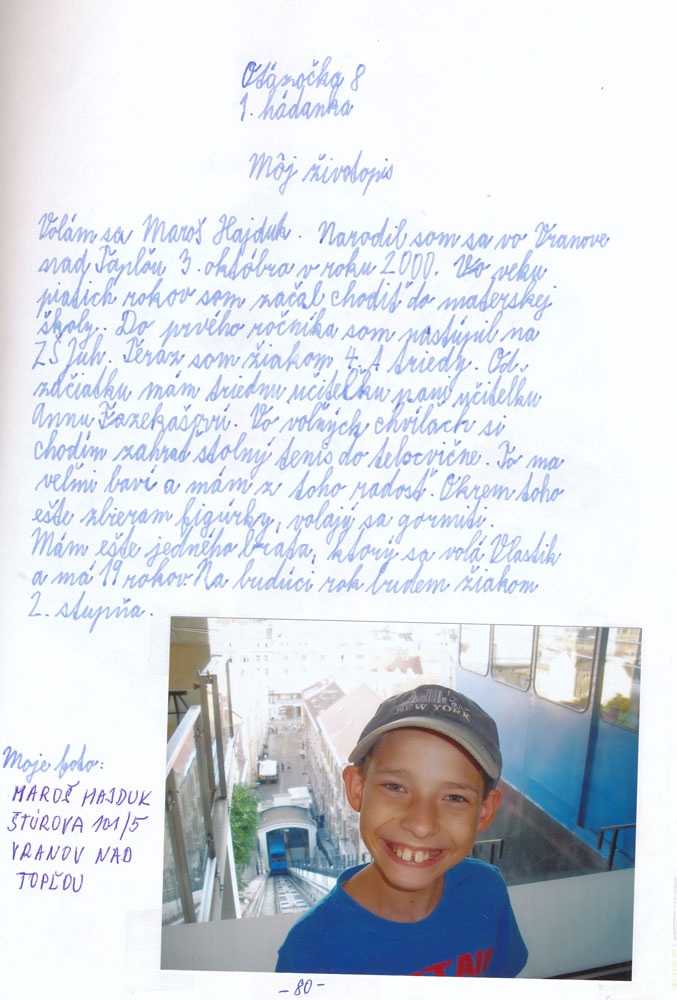 Otázočka 8
1. hádanka
Môj životopis
Volám sa Maroš Hajduk. Narodil som sa vo Vranove
nad Topľou 3. októbra v roku 2000. Vo veku
piatich rokov som začal chodiť do materskej
školy. Do prvého ročníka som nastúpil na
ZŠ Juh. Teraz som žiakom 4. A triedy. Od
začiatku mám triednu učiteľku pani učiteľku
Annu Fazekašovú. Vo voľných chvíľach si
chodím zahrať stolný tenis do telocvične. To ma
veľmi baví a mám z toho radosť. Okrem toho
ešte zbieram figúrky, volajú sa gormiti.
Mám ešte jedného brata, ktorý sa volá Vlastik
a má 19 rokov. Na budúci rok budem žiakom
2. stupňa.
NEW YORK
Moje foto:
MAROŠ HAJDUK
ŠTÚROVA 101/5
VRANOV NAD
TOPĽOU
- 80 -